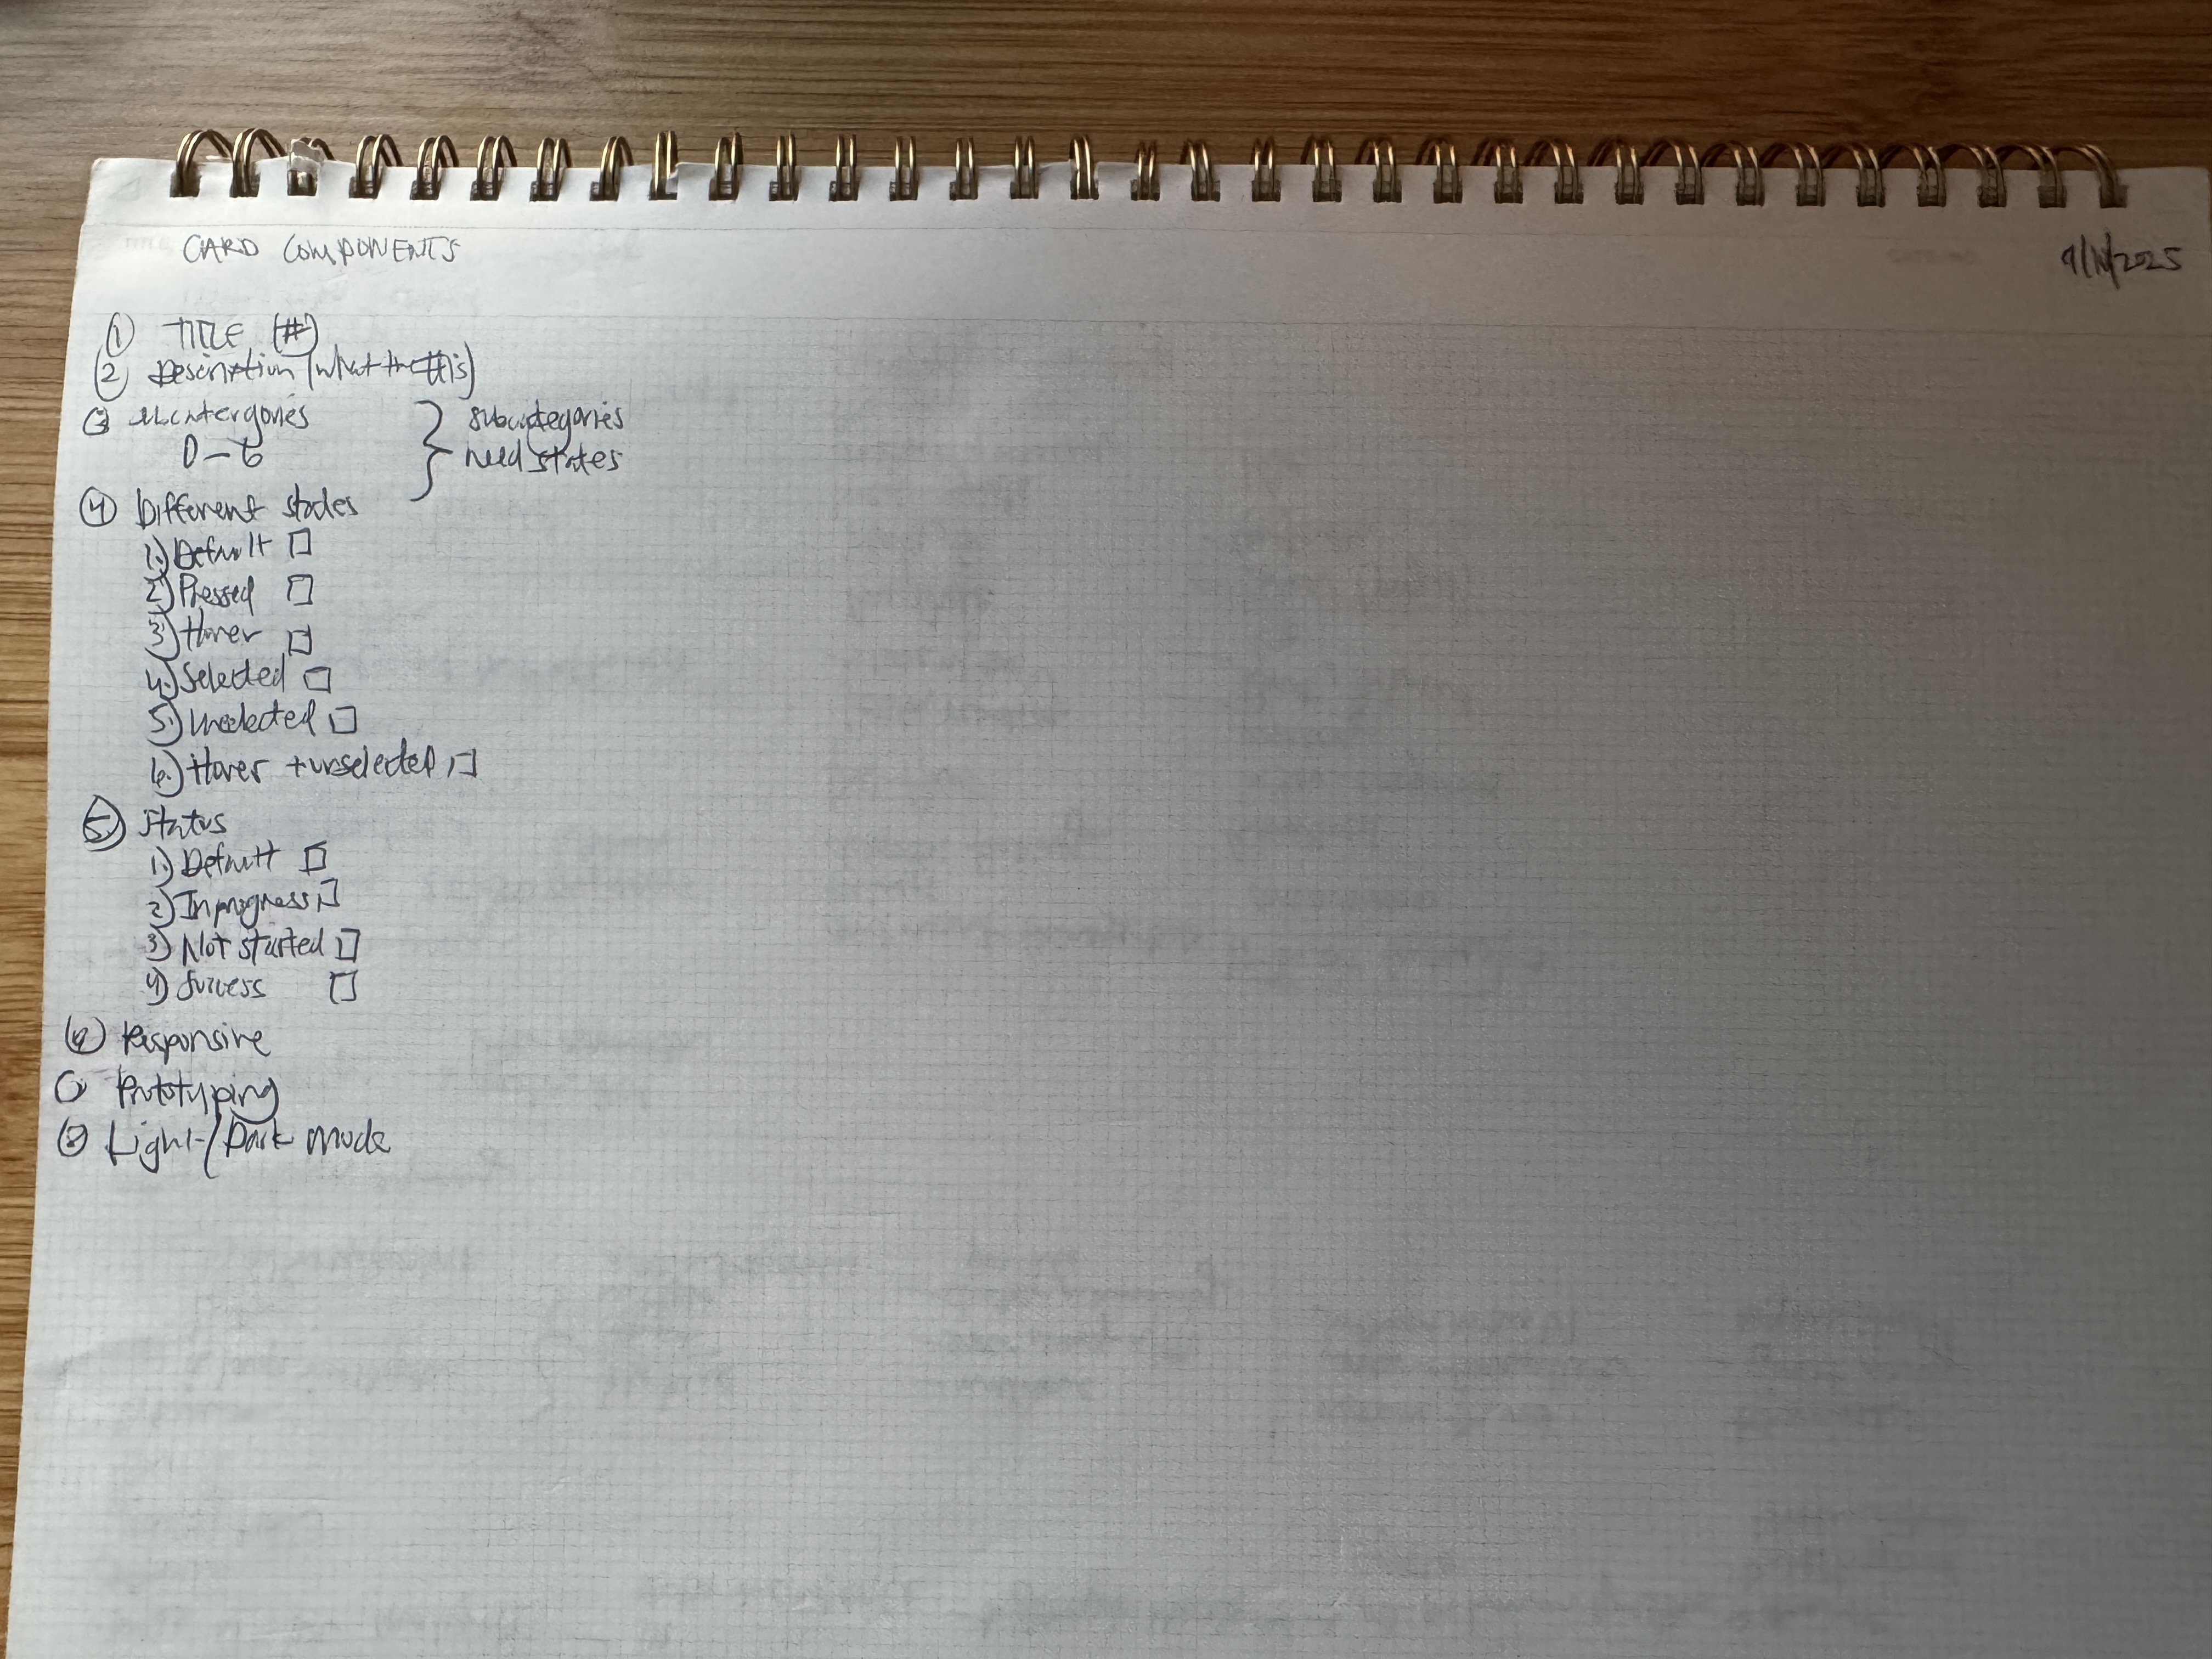 CARD COMPONENTS
① TITLE (#)
② Description (what the # is)
③ subcatergories
0-6
} subcategories
need states
④ Different states
1.) Default □
2.) Pressed □
3.) Hover □
4.) Selected □
5.) Unselected □
6.) Hover + unselected □
⑤ Status
1.) Default □
2) In progress □
3) Not started □
4) Success □
⑥ Responsive
Prototyping
⑧ Light/Dark mode